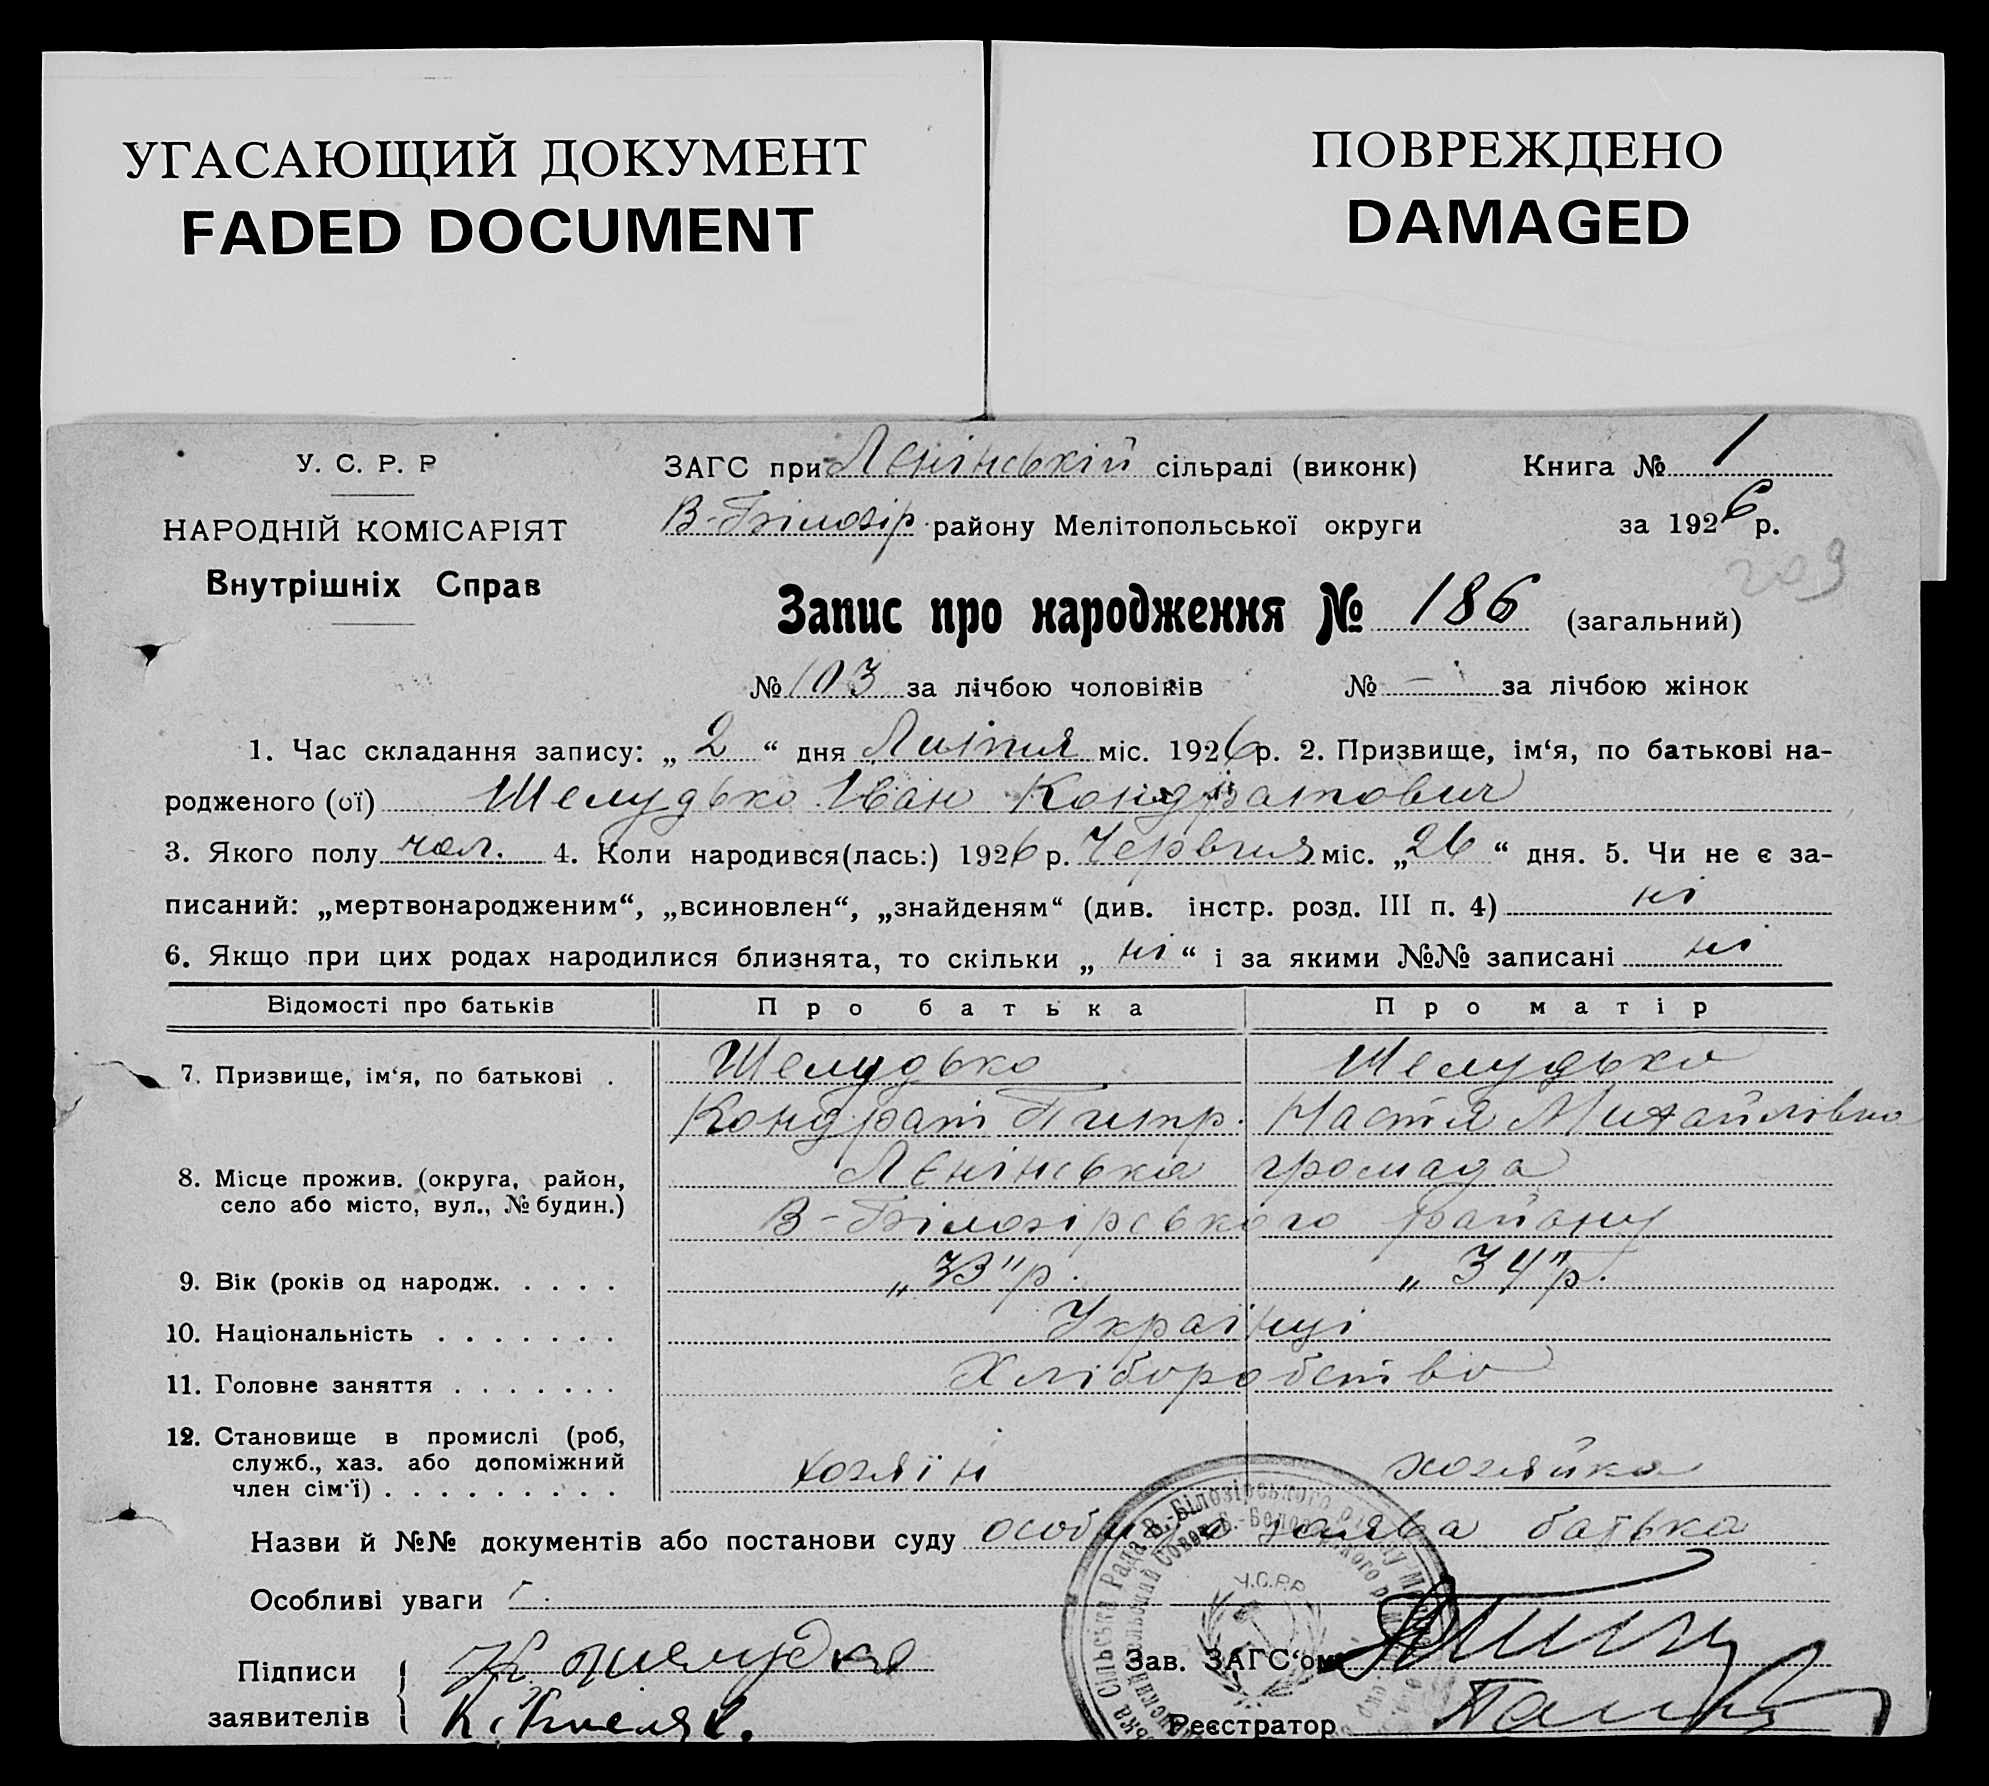 УГАСАЮЩИЙ ДОКУМЕНТ
FADED DOCUMENT
ПОВРЕЖДЕНО
DAMAGED
У. С. Р. Р
НАРОДНІЙ КОМІСАРІЯТ
Внутрішніх Справ
ЗАГС при Лєнінській сільраді (виконк) Книга № 1
В-Білозір. району Мелітопольської округи за 1926 р.
209
Запис про народження № 186 (загальний)
№ 103 за лічбою чоловіків № – за лічбою жінок
1. Час складання запису: „ 2 “ дня Липня міс. 1926 р. 2. Призвище, ім‘я, по батькові на-
родженого (ої) Шелудько Іван Кондратович
3. Якого полу чол. 4. Коли народився(лась:) 1926 р. Червня міс. „ 26 “ дня. 5. Чи не є за-
писаний: „мертвонародженим“, „всиновлен“, „знайденям“ (див. інстр. розд. III п. 4) ні
6. Якщо при цих родах народилися близнята, то скільки „ ні “ і за якими №№ записані ні
Відомості про батьків Про батька Про матір
7. Призвище, ім‘я, по батькові . Шелудько Шелудько
Кондрат Питр. Настя Михайлівна
8. Місце прожив. (округа, район, Лєнінська громада
село або місто, вул., № будин.) В-Білозірського району
9. Вік (років од народж. . . . . „ 33 " р. „ 34 " р.
10. Національність . . . . . . . Українці
11. Головне заняття . . . . . . . Хліборобство
12. Становище в промислі (роб,
служб., хаз. або допоміжний хозяїн хозяйка
член сім‘ї) . . . . . . . . .
Назви й №№ документів або постанови суду особиста заява батька
Особливі уваги
У.С.Р.Р
Підписи
заявителів
Зав. ЗАГС‘ом
Реєстратор